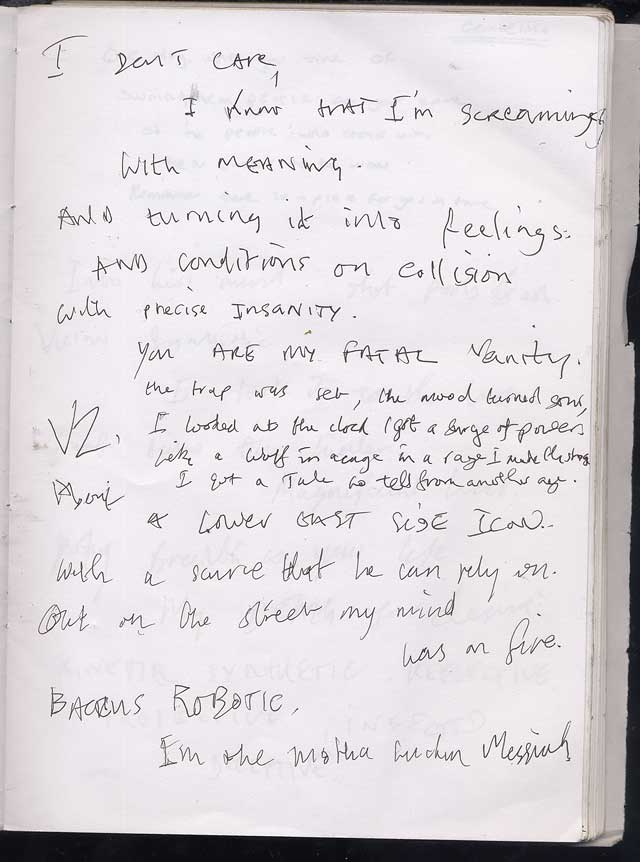 I DON'T CARE,
I know THAT I'm screaming
WITH MEANING.
AND turning it into feelings.
AND conditions on collision
with precise INSANITY.
You ARE MY FATAL Vanity.
the trap was set, the mood turned sour,
I looked at the clock I got a surge of powers
V2.
Like a wolf in a cage in a rage I make the
I got a Tale to tell from another age.
A LOWER EAST SIDE ICON.
with a source that he can rely on.
Out on the street my mind
was on fire.
ROBOTIC,
I'm the motha fuckin Messiah